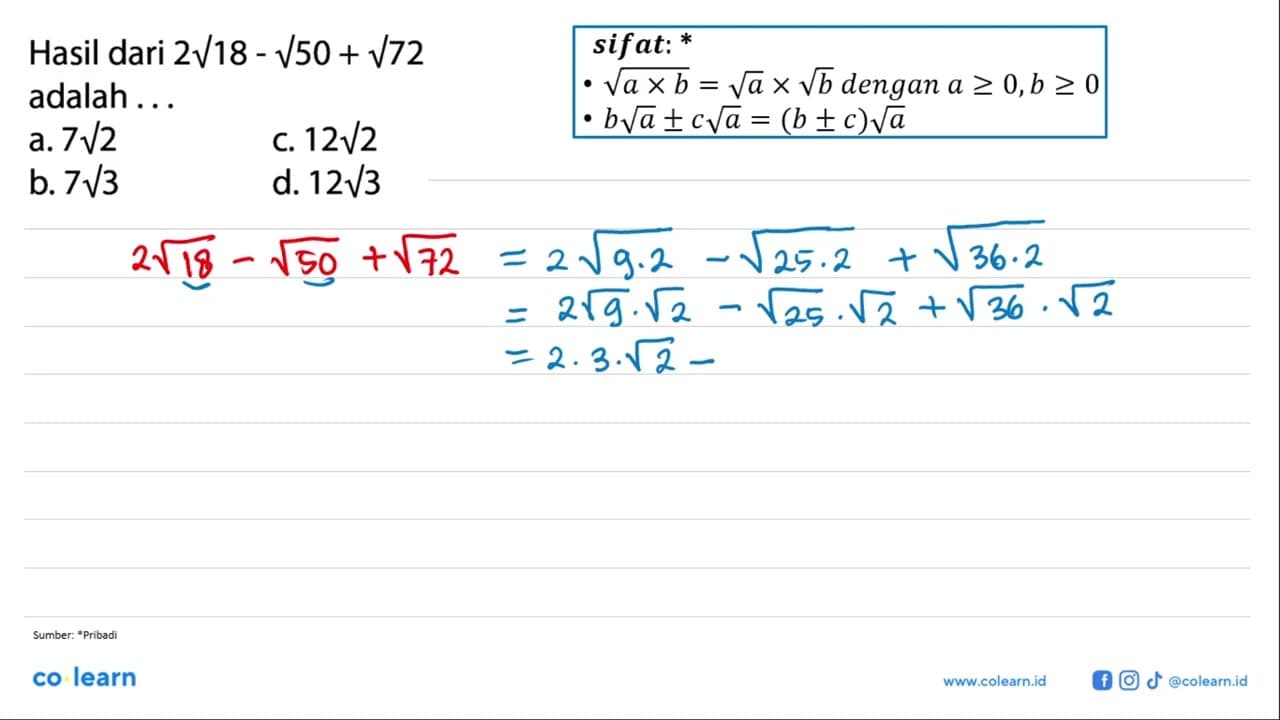 Hasil dari 2√18 - √50 + √72
adalah . . .
a. 7√2 c. 12√2
b. 7√3 d. 12√3
sifat: *
• √(a × b) = √a × √b dengan a ≥ 0, b ≥ 0
• b√a ± c√a = (b ± c)√a
2√18 - √50 + √72 = 2√(9.2) - √(25.2) + √(36.2)
= 2√9 . √2 - √25 . √2 + √36 . √2
= 2 . 3 . √2 -
Sumber: *Pribadi
co learn
www.colearn.id @colearn.id